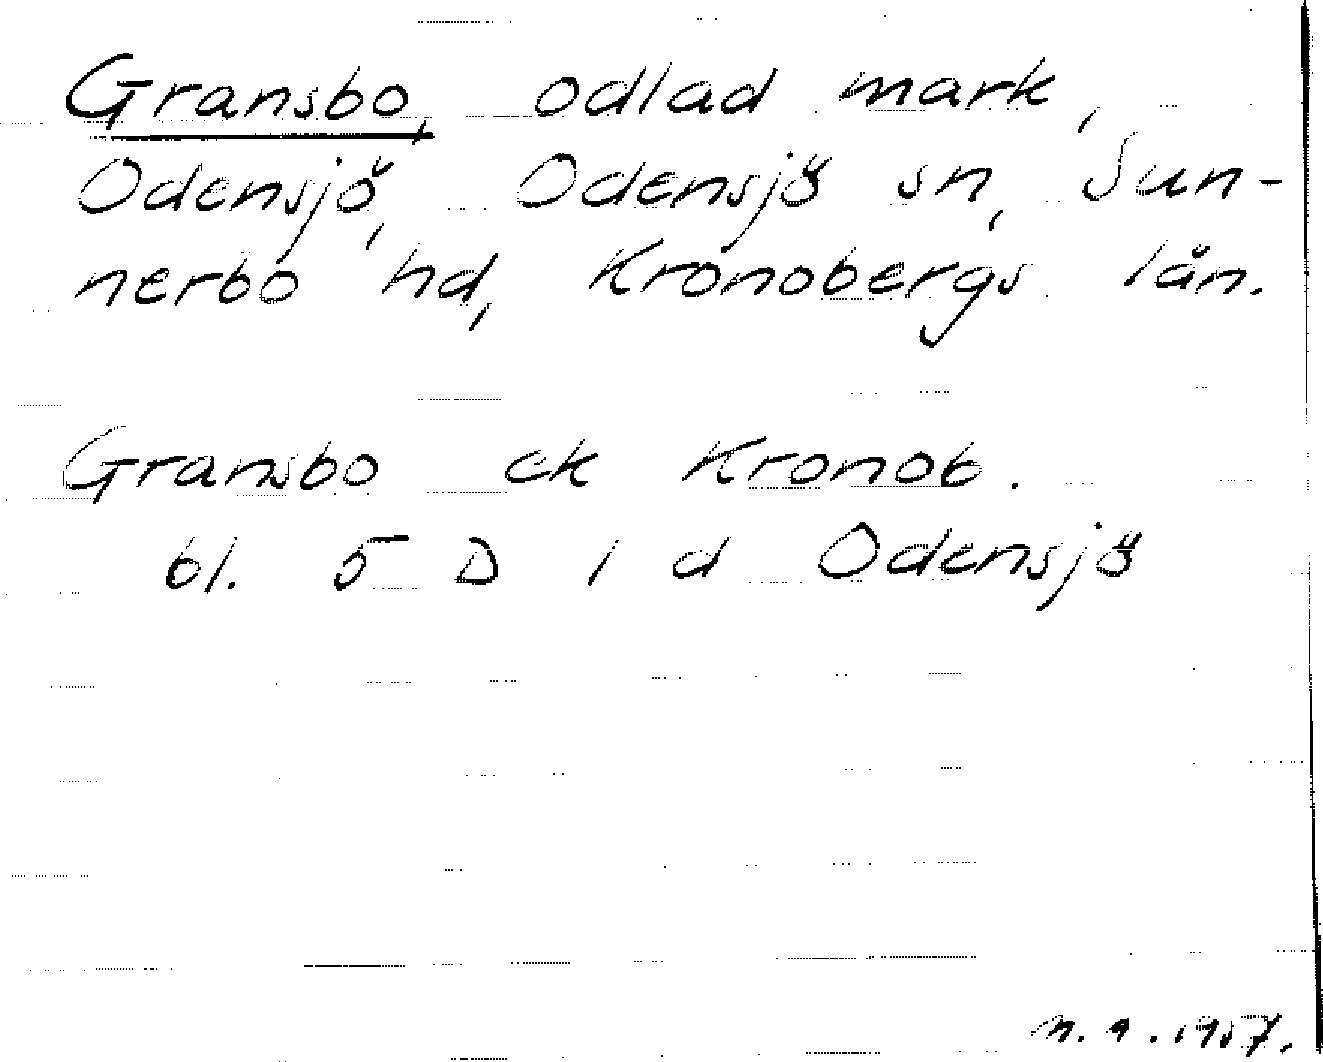 Gransbo, odlad mark,
Odensjö, Odensjö sn, Sun-
nerbo hd, Kronobergs län.
Gransbo ek Kronob.
bl. 5 D 1 d Odensjö
n. a. 1957.